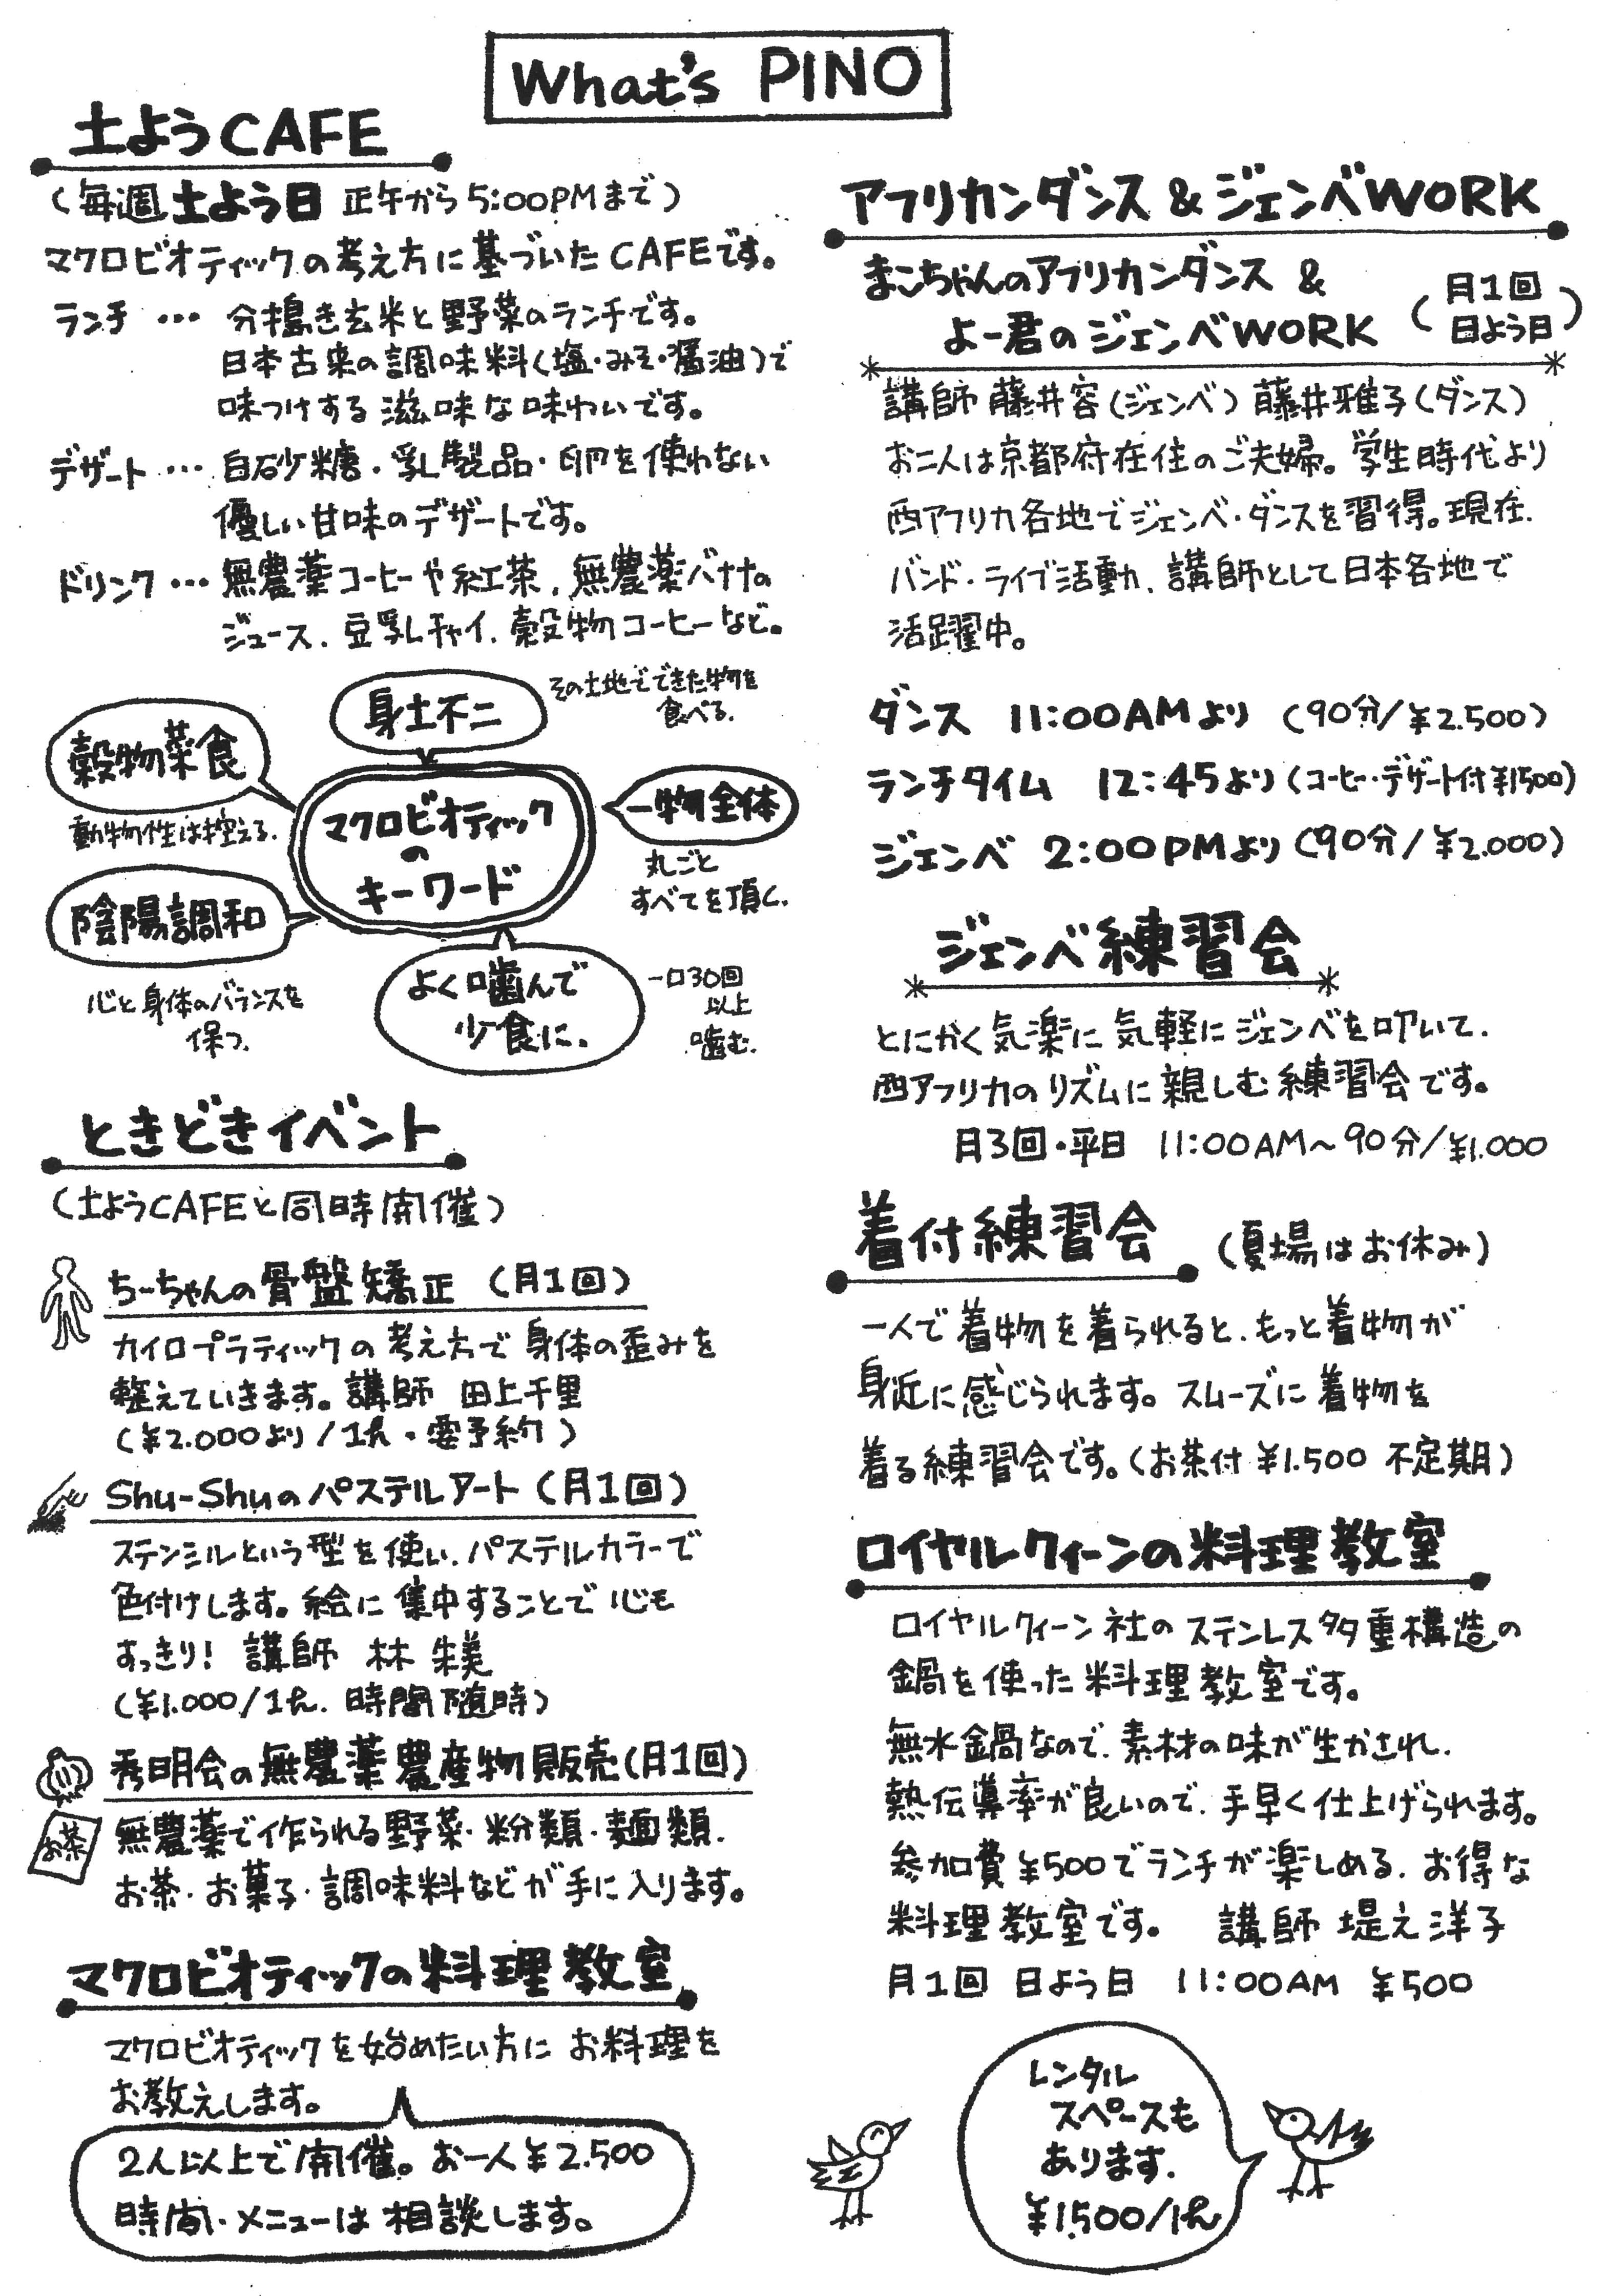 What's PINO
土ようCAFE
(毎週土よう日 正午から5:00PMまで)
マクロビオティックの考え方に基づいたCAFEです。
ランチ … 分搗き玄米と野菜のランチです。
日本古来の調味料(塩・みそ・醤油)で
味つけする滋味な味わいです。
デザート … 白砂糖・乳製品・卵を使わない
優しい甘味のデザートです。
ドリンク … 無農薬コーヒーや紅茶、無農薬バナナの
ジュース、豆乳チャイ、穀物コーヒーなど。
身土不二
その土地でできた物を
食べる。
穀物菜食
動物性は控える。
マクロビオティック
の
キーワード
一物全体
丸ごと
すべてを頂く。
陰陽調和
心と身体のバランスを
保つ。
よく噛んで
少食に。
一口30回
以上
噛む。
ときどきイベント
(土ようCAFEと同時開催)
ちーちゃんの骨盤矯正 (月1回)
カイロプラティックの考え方で身体の歪みを
整えていきます。講師 田上千里
(¥2.000より/1h・要予約)
Shu-Shuのパステルアート(月1回)
ステンシルという型を使い、パステルカラーで
色付けします。絵に集中することで心も
すっきり! 講師 林 朱美
(¥1.000/1h. 時間随時)
秀明会の無農薬農産物販売(月1回)
お茶
無農薬で作られる野菜・粉類・麺類、
お茶・お菓子・調味料などが手に入ります。
マクロビオティックの料理教室
マクロビオティックを始めたい方にお料理を
お教えします。
2人以上で開催。お一人¥2.500
時間・メニューは相談します。
アフリカンダンス&ジェンベWORK
まこちゃんのアフリカンダンス &
よー君のジェンベWORK
(月1回
日よう日)
講師 藤井容(ジェンベ) 藤井雅子(ダンス)
お二人は京都府在住のご夫婦。学生時代より
西アフリカ各地でジェンベ・ダンスを習得。現在、
バンド・ライブ活動、講師として日本各地で
活躍中。
ダンス 11:00AMより (90分/¥2.500)
ランチタイム 12:45より(コーヒー・デザート付¥1500)
ジェンベ 2:00PMより(90分/¥2.000)
ジェンベ練習会
とにかく気楽に気軽にジェンベを叩いて、
西アフリカのリズムに親しむ練習会です。
月3回・平日 11:00AM~90分/¥1.000
着付練習会 (夏場はお休み)
一人で着物を着られると、もっと着物が
身近に感じられます。スムーズに着物を
着る練習会です。(お茶付¥1.500 不定期)
ロイヤルクィーンの料理教室
ロイヤルクィーン社のステンレス多重構造の
鍋を使った料理教室です。
無水鍋なので、素材の味が生かされ、
熱伝導率が良いので、手早く仕上げられます。
参加費¥500でランチが楽しめる、お得な
料理教室です。 講師 堤え洋子
月1回 日よう日 11:00AM ¥500
レンタル
スペースも
あります。
¥1500/1h